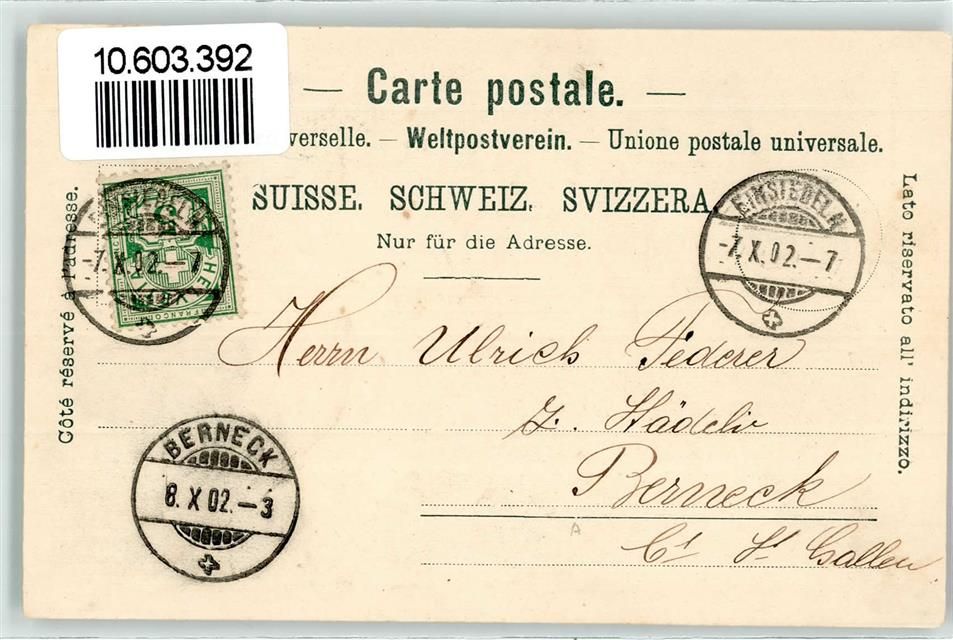 10.603.392
— Carte postale. —
verselle. — Weltpostverein. — Unione postale universale.
SUISSE. SCHWEIZ. SVIZZERA.
Nur für die Adresse.
Côté réservé à l'adresse.
Lato riservato all' indirizzo.
EINSIEDELN
-7.X.02.-7
HELV
FRANCO
EINSIEDELN
-7.X.02.-7
Herrn Ulrich Federer
z. Städeli
Berneck
Ct St Gallen.
BERNECK
8.X.02.-3
A